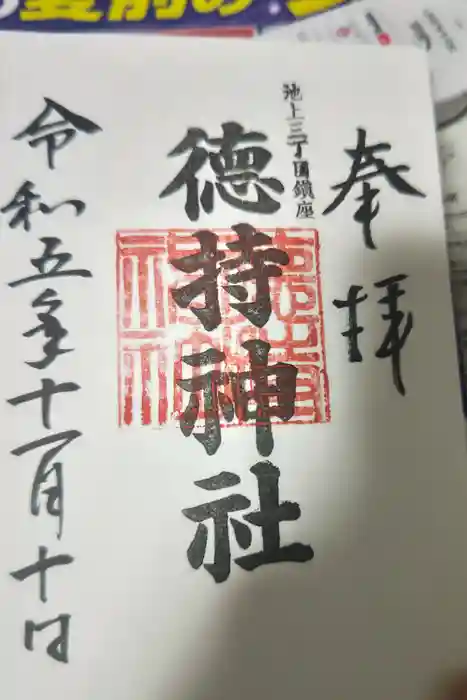 奉拝
池上三丁目鎮座
徳持神社
令和五年十一月十日